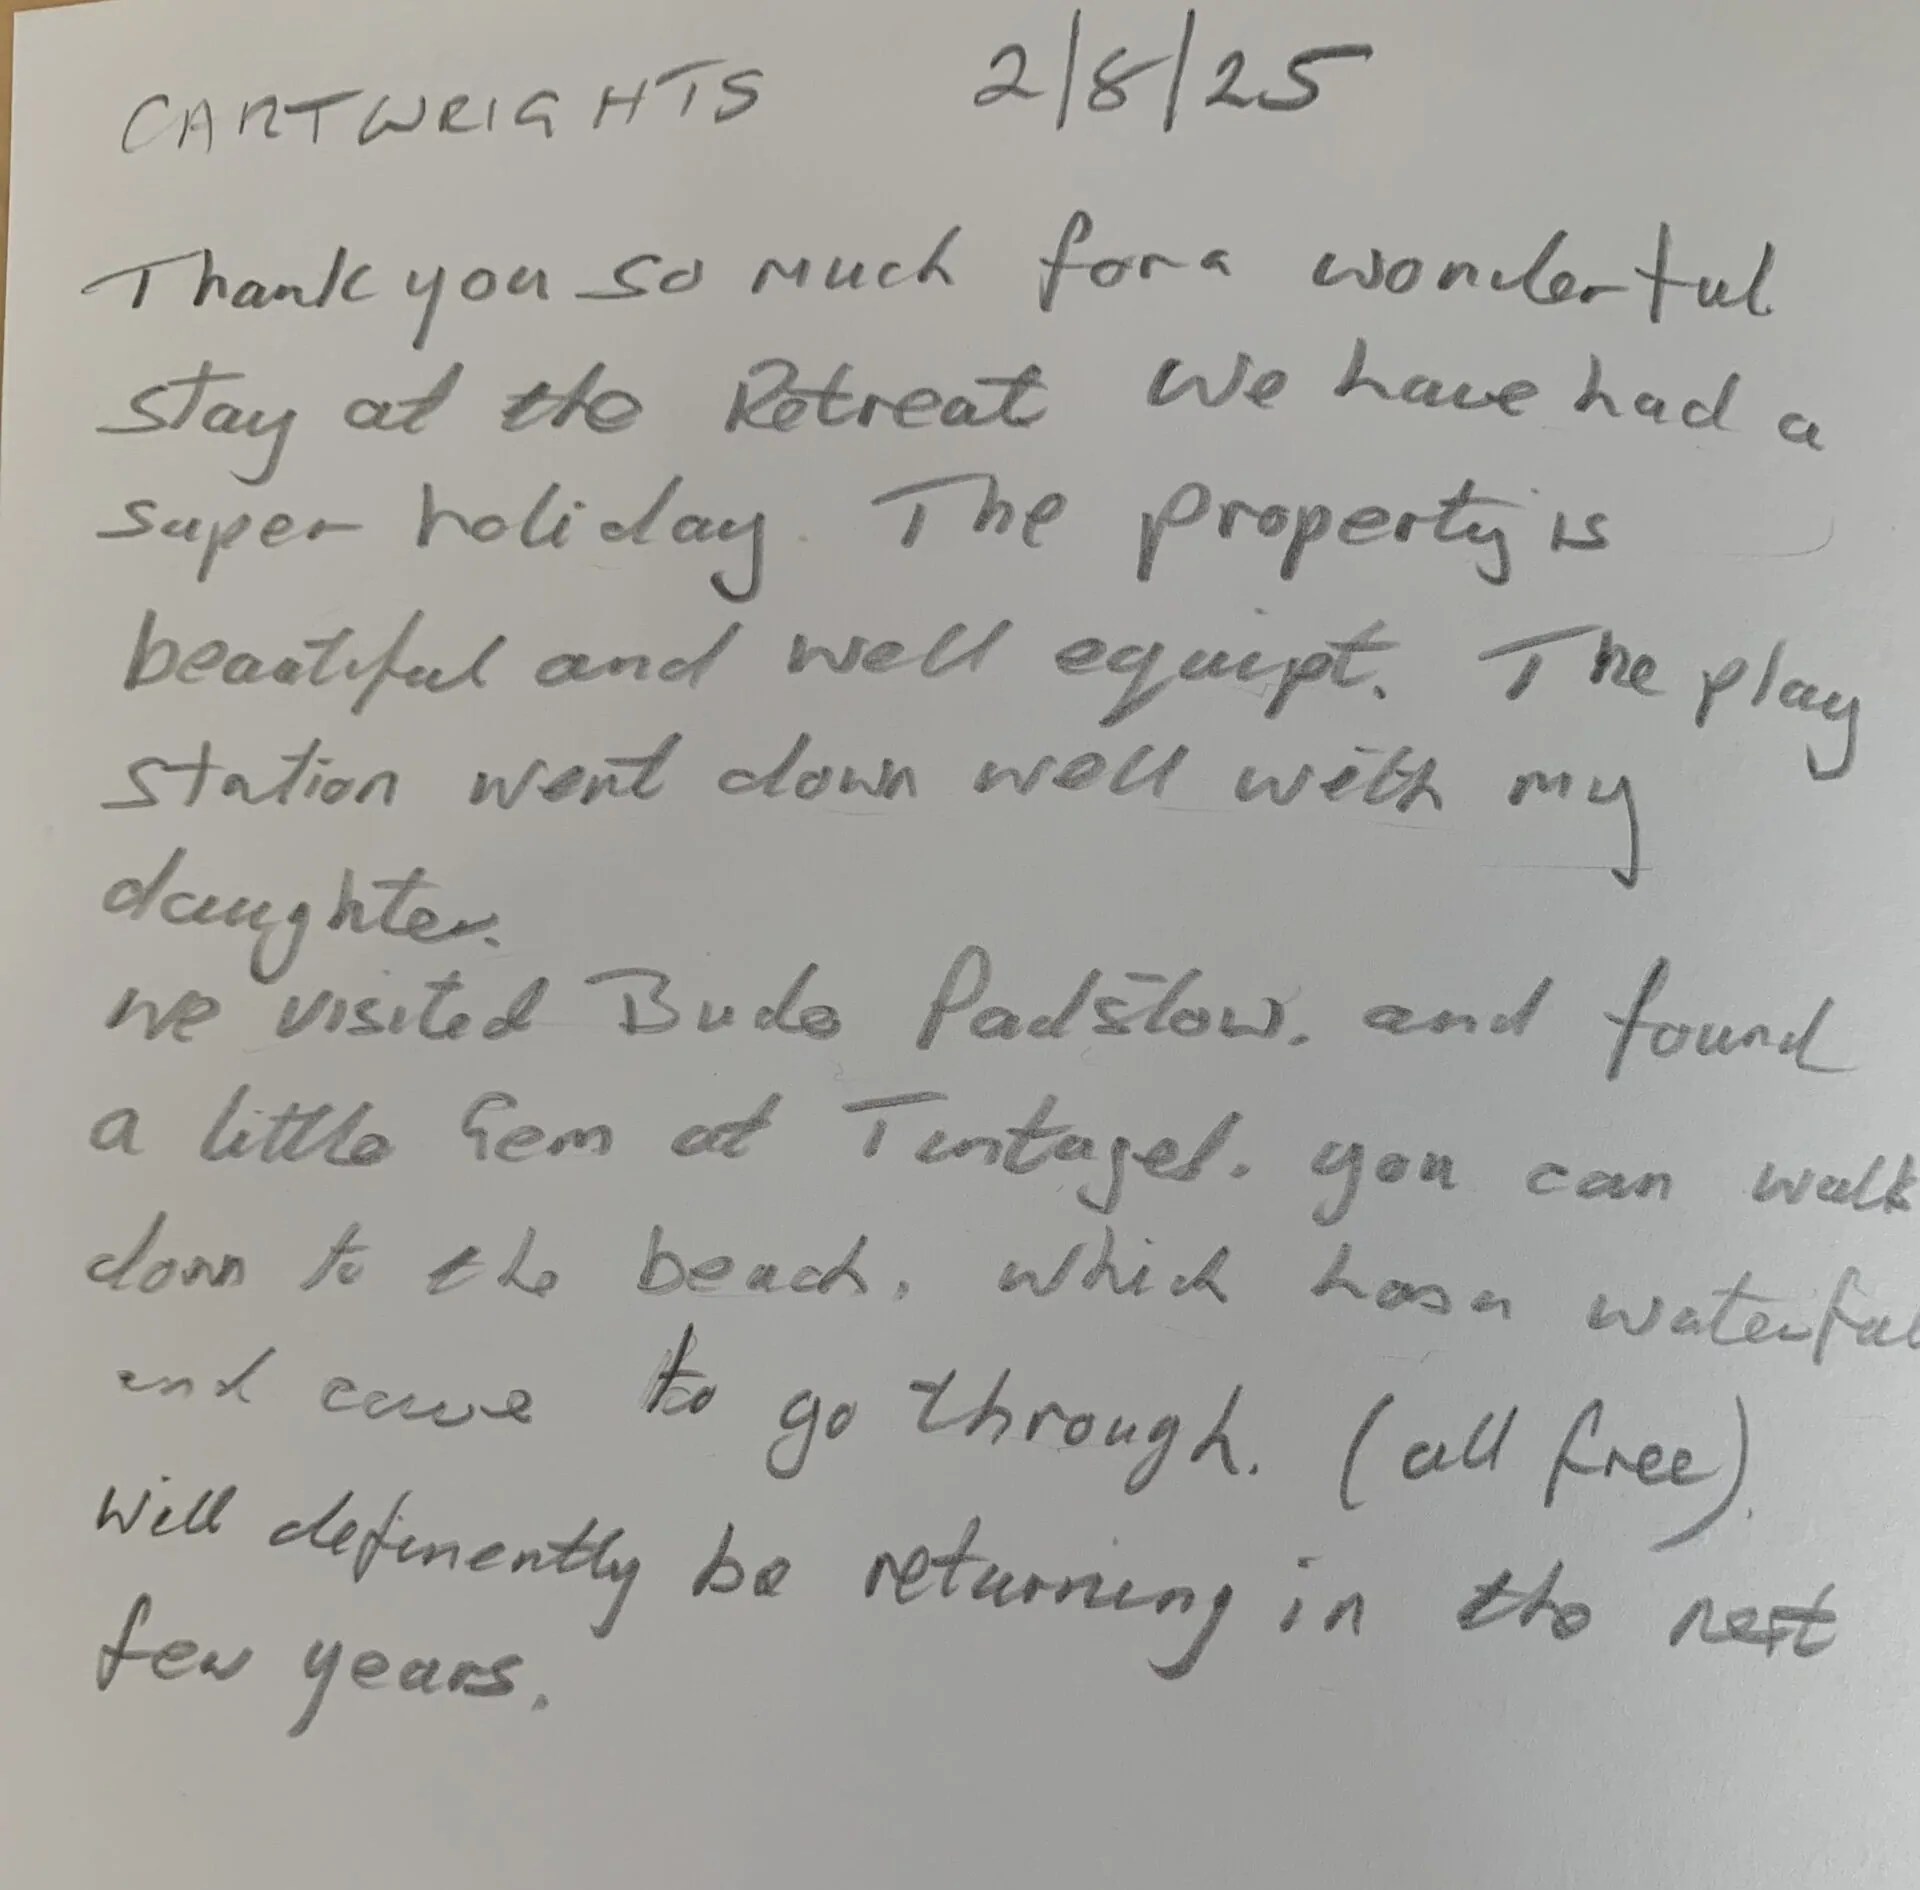 CARTWRIGHTS 2/8/25
Thank you so much for a wonderful
stay at the Retreat We have had a
super holiday. The property is
beautiful and well equipt. The play
station went down well with my
daughter.
we visited Bude Padstow. and found
a little Gem at Tintagel. you can walk
down to the beach. which has a waterfal
and cave to go through. (all free).
Will definently be returning in the next
few years.